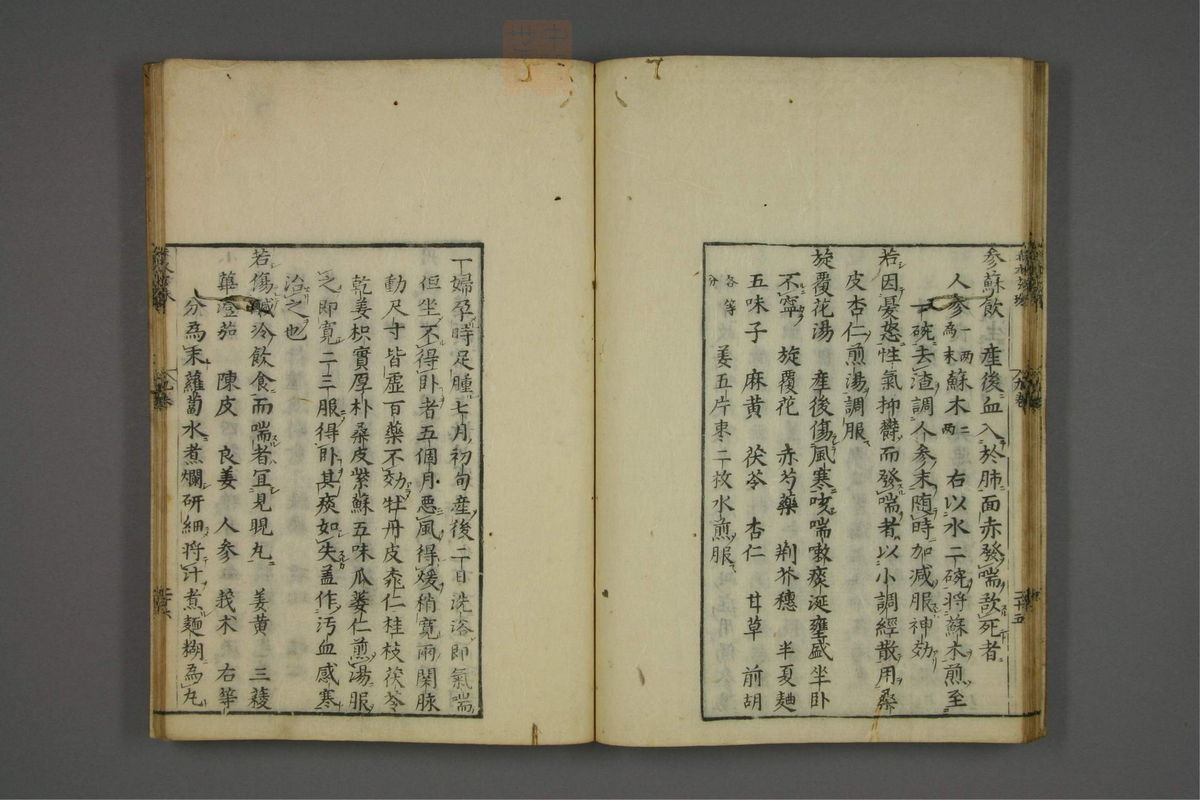 参蘇飲　産後血入於肺面赤發喘欲死者
人参一両為末蘇木二両　右以水二碗将蘇木煎至
一碗去渣調人参末随時加减服神効
若因憂怒性氣抑欝而發喘者以小調經散用桑
皮杏仁煎湯調服
旋覆花湯　産後傷風寒咳喘嗽痰涎壅盛坐卧
不寧　旋覆花　赤芍藥　荊芥穗　半夏麯
五味子　麻黄　茯苓　杏仁　甘草　前胡
各等分　姜五片棗二枚水煎服
丁婦孕時足腫七月初旬産後二日洗浴即氣喘
但坐不得卧者五個月惡風得煖稍寛両関脉
動尺寸皆虚百藥不効牡丹皮桃仁桂枝茯苓
乾姜枳實厚朴桑皮紫蘇五味瓜蔞仁煎湯服
之即寛二三服得卧其痰如失盖作汚血感寒
治之也
若傷鹹冷飲食而喘者宜見晛丸　姜黄　三稜
蓽澄茄　陳皮　良姜　人参　莪朮　右等
分為末蘿蔔水煮爛研細将汁煮麺糊為丸